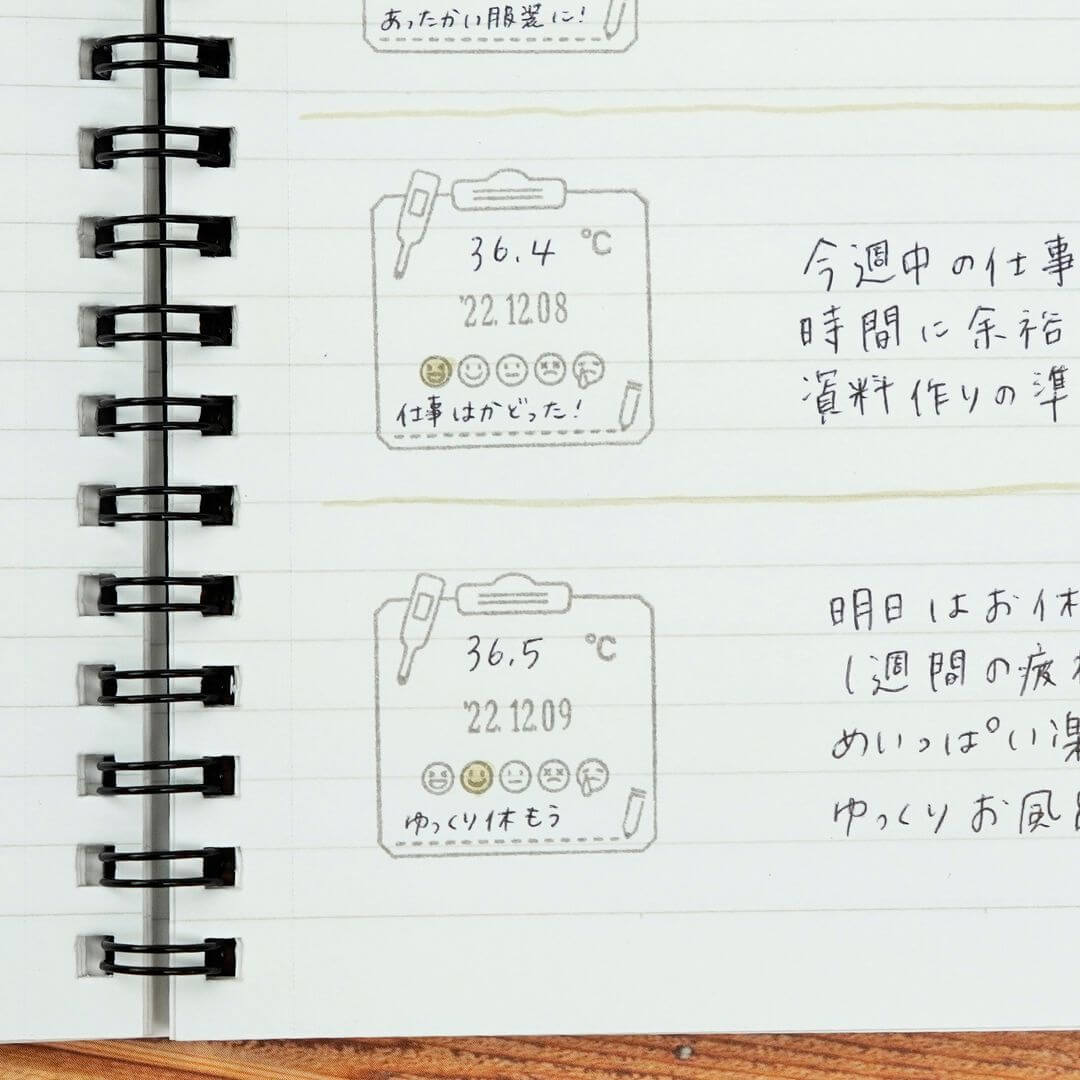 あったかい服装に!
36.4 ℃
'22.12.08
仕事はかどった!
今週中の仕事
時間に余裕
資料作りの準
36.5 ℃
'22.12.09
ゆっくり休もう
明日はお休
1週間の疲
めいっぱい楽
ゆっくりお風